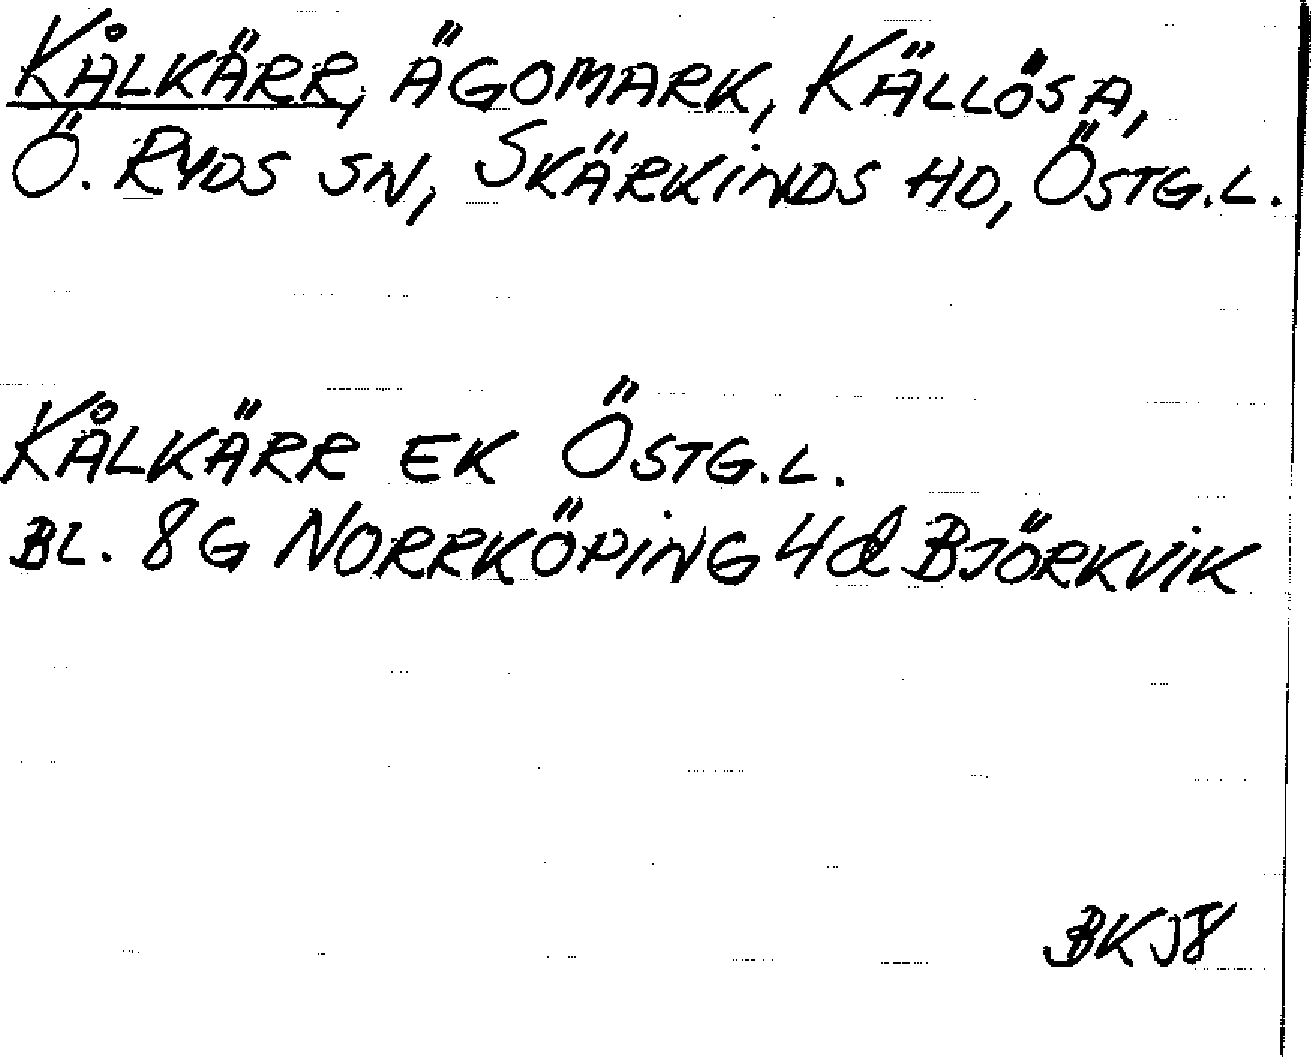 KÅLKÄRR, ÄGOMARK, KÄLLÖSA,
Ö. RYDS SN, SKÄRKINDS HD, ÖSTG.L.
KÅLKÄRR EK ÖSTG.L.
BL. 8G NORRKÖPING 4d BJÖRKVIK